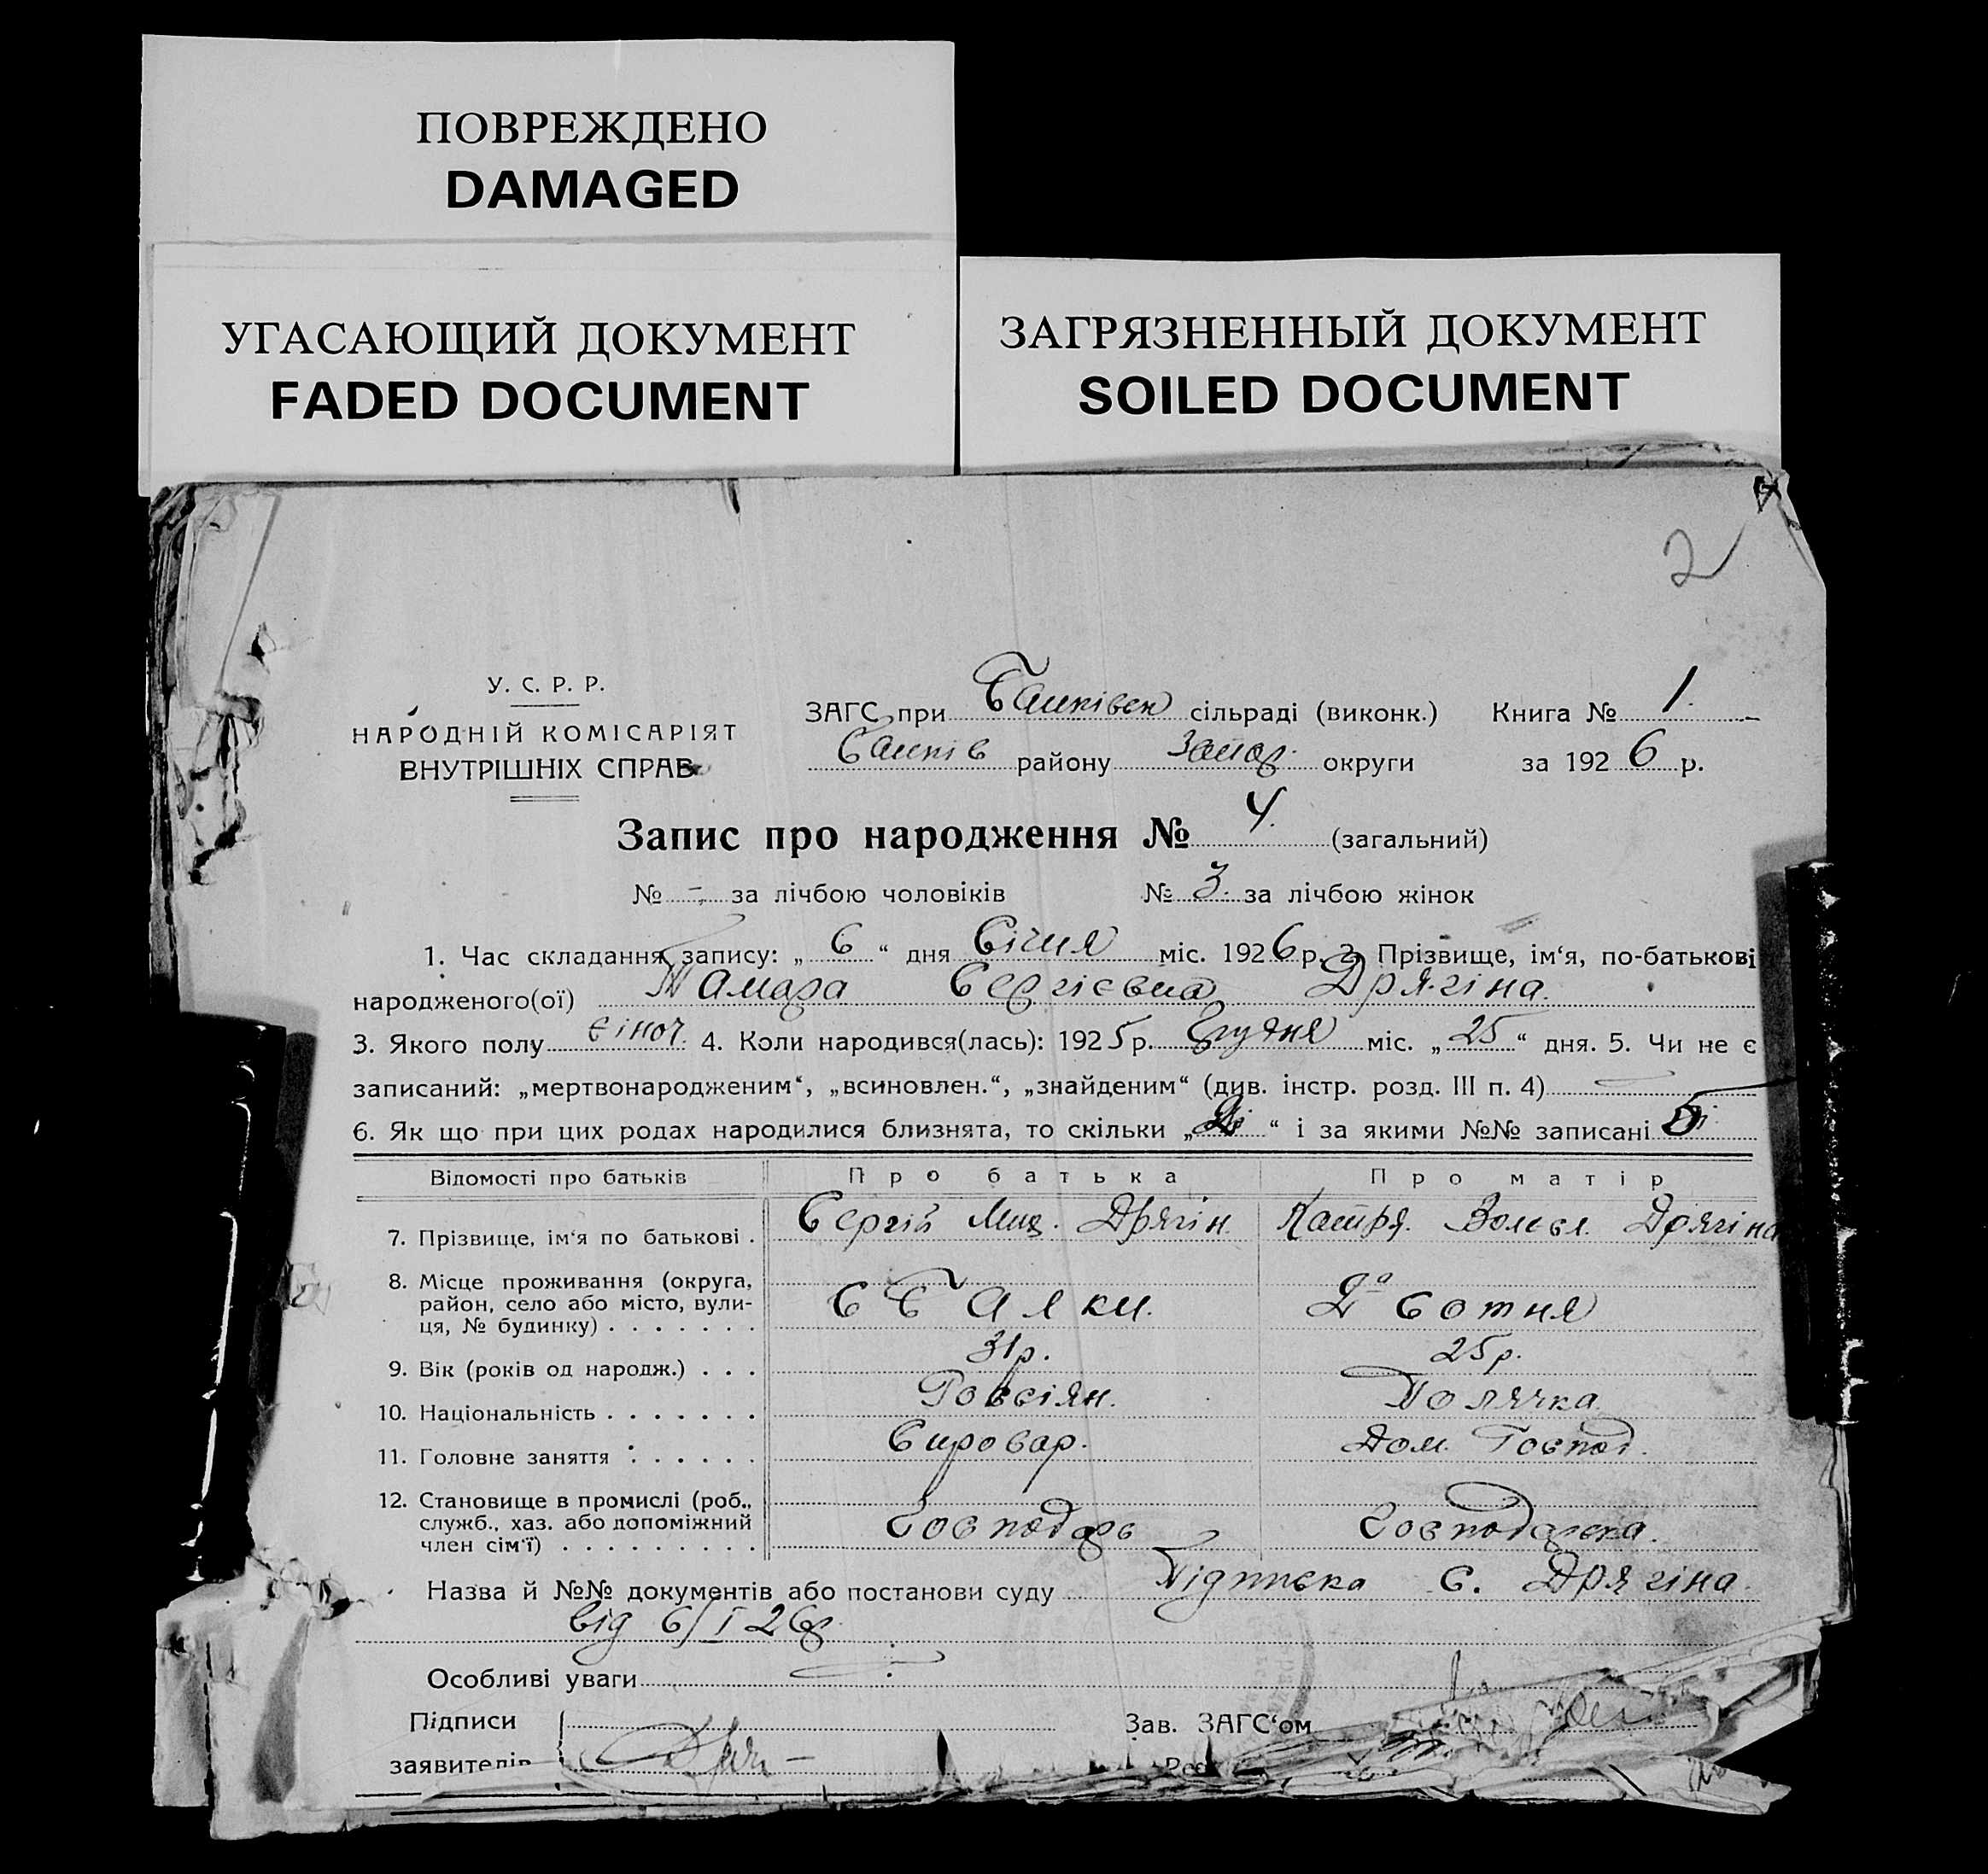 ПОВРЕЖДЕНО
DAMAGED
УГАСАЮЩИЙ ДОКУМЕНТ
FADED DOCUMENT
ЗАГРЯЗНЕННЫЙ ДОКУМЕНТ
SOILED DOCUMENT
2
У. С. Р. Р.
НАРОДНІЙ КОМІСАРІЯТ
ВНУТРІШНІХ СПРАВ
ЗАГС при сільраді (виконк.) Книга № 1.
району Запор. округи за 1926 р.
Запис про народження № 4. (загальний)
№ - за лічбою чоловіків № 3. за лічбою жінок
1. Час складання запису: „ 6 “ дня Січня міс. 1926 р. 2. Прізвище, ім‘я, по-батькові
народженого(ої) Тамара Сергієвна Дрягіна.
3. Якого полу жіноч. 4. Коли народився(лась): 1925 р. Грудня міс. „ 25 “ дня. 5. Чи не є
записаний: „мертвонародженим“, „всиновлен.“, „знайденим“ (див. інстр. розд. III п. 4)
6. Як що при цих родах народилися близнята, то скільки „ “ і за якими №№ записані
Відомості про батьків Про батька Про матір
7. Прізвище, ім‘я по батькові . Сергій Мих. Дрягін. Катря. Дрягіна
8. Місце проживання (округа,
район, село або місто, вули-
ця, № будинку) . . . . . . . С Балки. 2а Сотня
9. Вік (років од народж.) . . . 31 р. 25 р.
10. Національність . . . . . . . Россіян. Полячка.
11. Головне заняття . . . . . . Сировар. Дом. Господ.
12. Становище в промислі (роб.,
служб., хаз. або допоміжний
член сім‘ї) . . . . . . . . . Господарь Господарка.
Назва й №№ документів або постанови суду Підписка С. Дрягіна.
від 6/I 26р.
Особливі уваги
Підписи
заявителів
Зав. ЗАГС‘ом